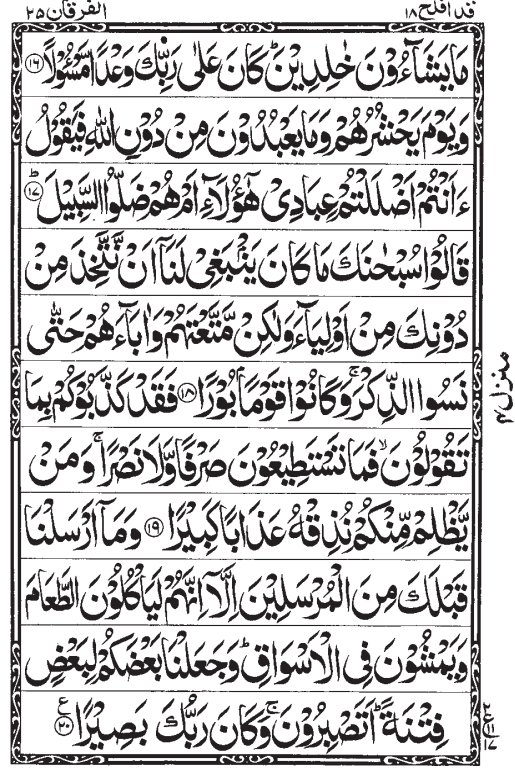 قد افلح ١٨
الفرقان ٢٥
مَا يَشَآءُوْنَ خٰلِدِيْنَ ؕ كَانَ عَلٰى رَبِّكَ وَعْدًا مَّسْـُٔوْلًا ﴿۱۶﴾
وَيَوْمَ يَحْشُرُهُمْ وَمَا يَعْبُدُوْنَ مِنْ دُوْنِ اللّٰهِ فَيَقُوْلُ
ءَاَنْتُمْ اَضْلَلْتُمْ عِبَادِىْ هٰٓؤُلَآءِ اَمْ هُمْ ضَلُّوا السَّبِيْلَ ؕ ﴿۱۷﴾
قَالُوْا سُبْحٰنَكَ مَا كَانَ يَنْۢبَغِىْ لَنَاۤ اَنْ نَّتَّخِذَ مِنْ
دُوْنِكَ مِنْ اَوْلِيَآءَ وَلٰكِنْ مَّتَّعْتَهُمْ وَاٰبَآءَهُمْ حَتّٰى
نَسُوا الذِّكْرَ ۚ وَكَانُوْا قَوْمًۢا بُوْرًا ﴿۱۸﴾ فَقَدْ كَذَّبُوْكُمْ بِمَا
تَقُوْلُوْنَ ۙ فَمَا تَسْتَطِيْعُوْنَ صَرْفًا وَّلَا نَصْرًا ۚ وَمَنْ
يَّظْلِمْ مِّنْكُمْ نُذِقْهُ عَذَابًا كَبِيْرًا ﴿۱۹﴾ وَمَاۤ اَرْسَلْنَا
قَبْلَكَ مِنَ الْمُرْسَلِيْنَ اِلَّاۤ اِنَّهُمْ لَيَاْكُلُوْنَ الطَّعَامَ
وَيَمْشُوْنَ فِى الْاَسْوَاقِ ؕ وَجَعَلْنَا بَعْضَكُمْ لِبَعْضٍ
فِتْنَةً ؕ اَتَصْبِرُوْنَ ۚ وَكَانَ رَبُّكَ بَصِيْرًا ﴿۲۰﴾ ع
منزل ۴
۲
ع ۱۱
۱۷